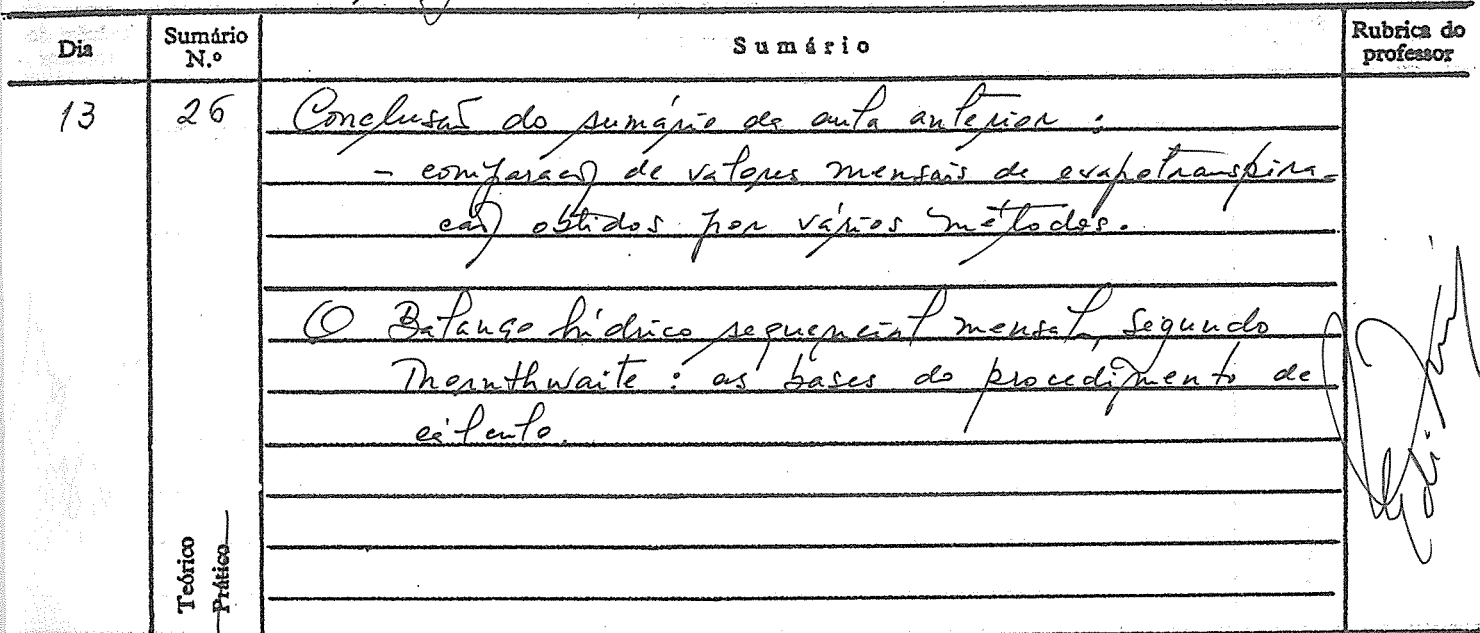 Dia Sumário N.º Sumário Rubrica do professor
13 26 Conclusão do sumário da aula anterior :
- comparação de valores mensais de evapotranspira-
ção obtidos por vários métodos.
O Balanço hídrico sequencial mensal, segundo
Thornthwaite : as bases do procedimento de
cálculo.
Teórico
Prático